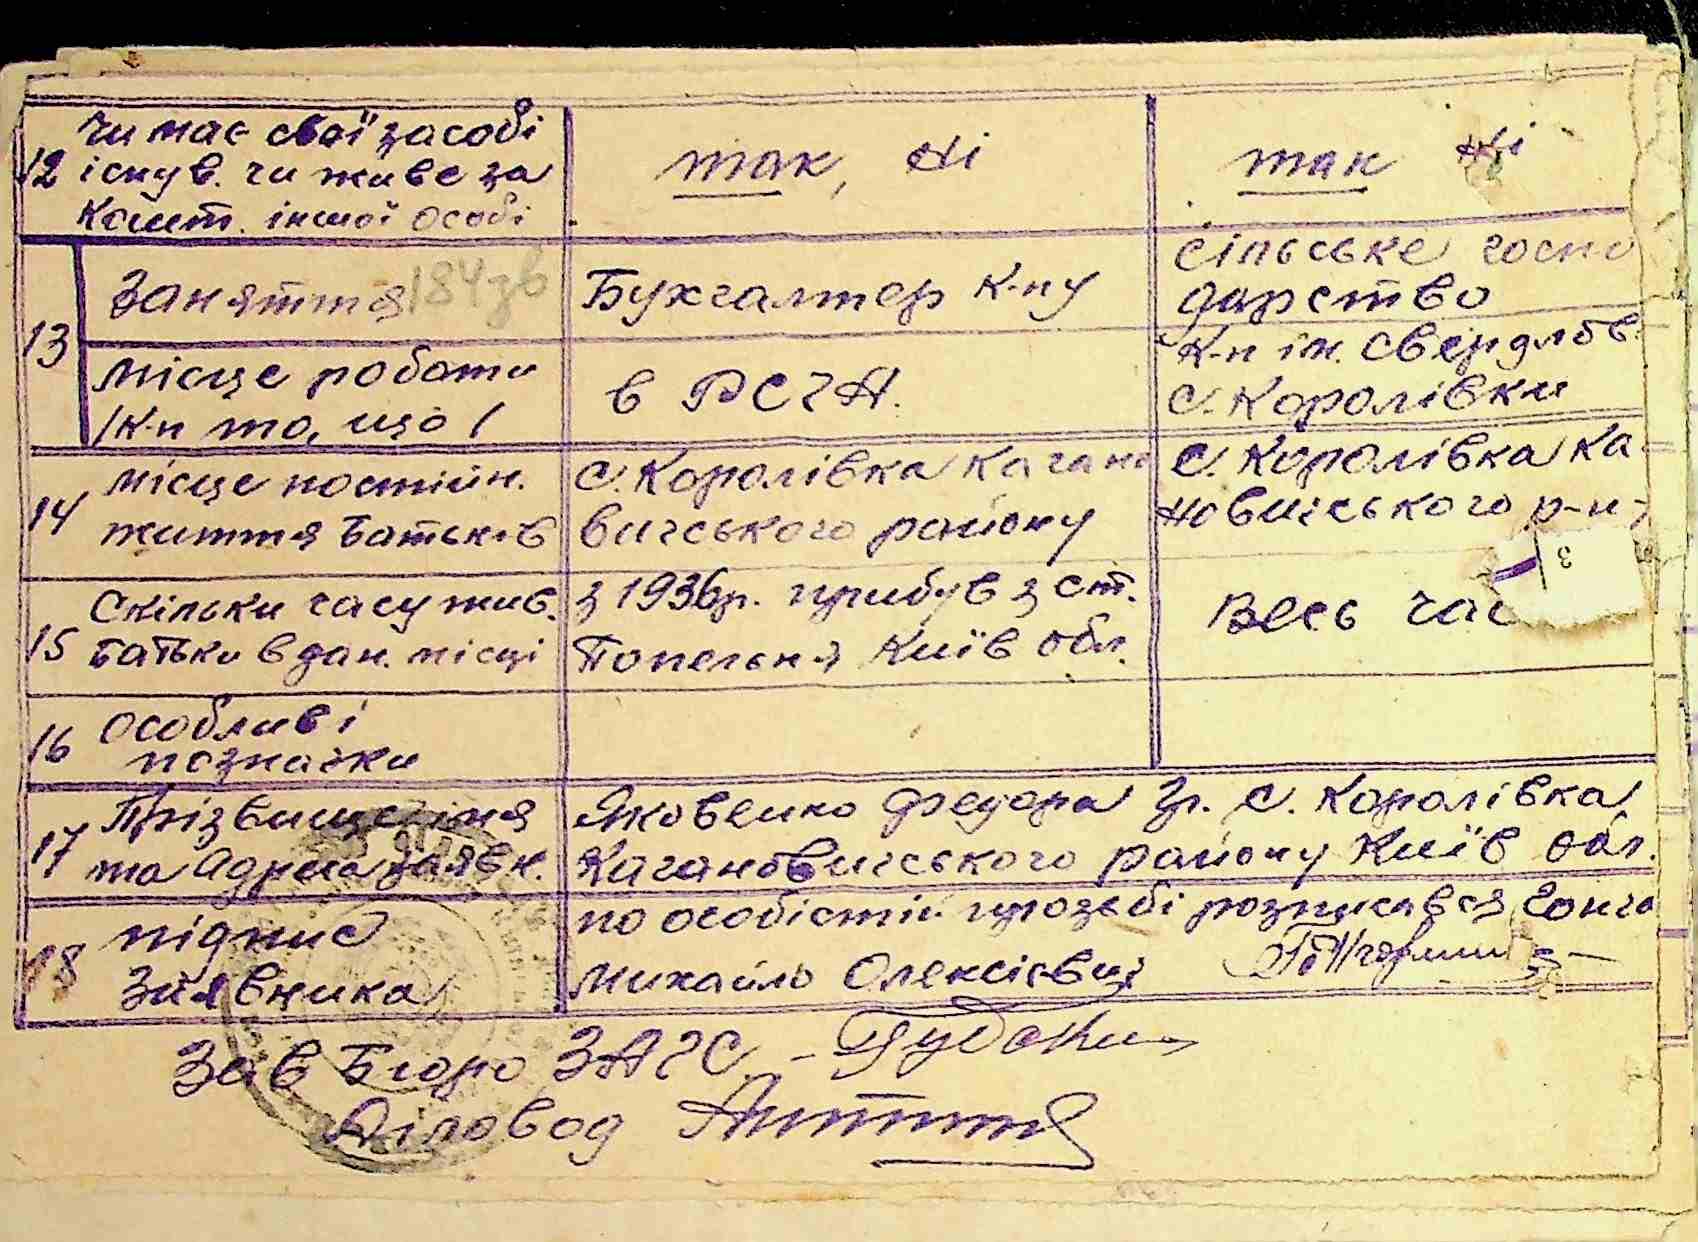 12 Чи має свої засобі
існув. чи живе за
кошт. іншої особі
так, ні
так ні
13 Заняття 184зв
Бухгалтер к-пу
сільське госпо
дарство
Місце роботи
/к-п то, що/
в РСЧА.
К-п ім. Свердлов.
с. Королівки
14 Місце постійн.
життя батьків
с. Королівка Кагано
вичського району
с. Королівка Ка-
новичського р-н
15 Скільки часу жив.
батьки в дан. місці
з 1936р. прибув з ст.
Попельня Київ обл.
Весь час
3
16 Особливі
позначки
17 Прізвище імя
та адреса заявн.
Яковенко Федора гр. с. Королівка
Кагановичського району Київ обл.
18 підпис
Заявника
по особістій прозьбі розписався Гонча
Михайло Олексієвич
Зав Бюро ЗАГС -
Діловод